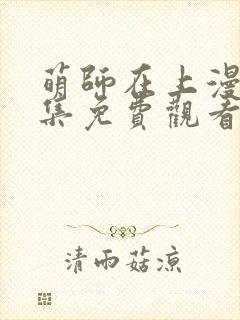 萌師在上漫
集免費觀看
清雨菇涼